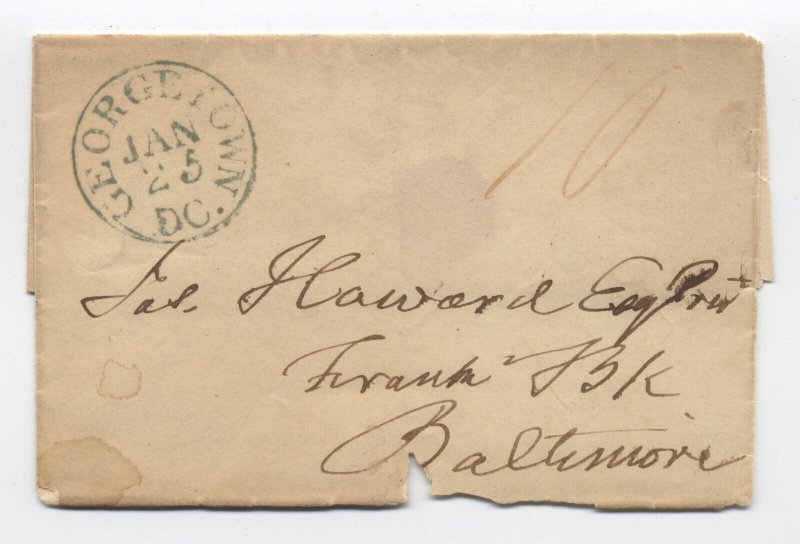 GEORGETOWN DC.
JAN
25
10
Jas. Howard Esq Prest
Frank Bk
Baltimore